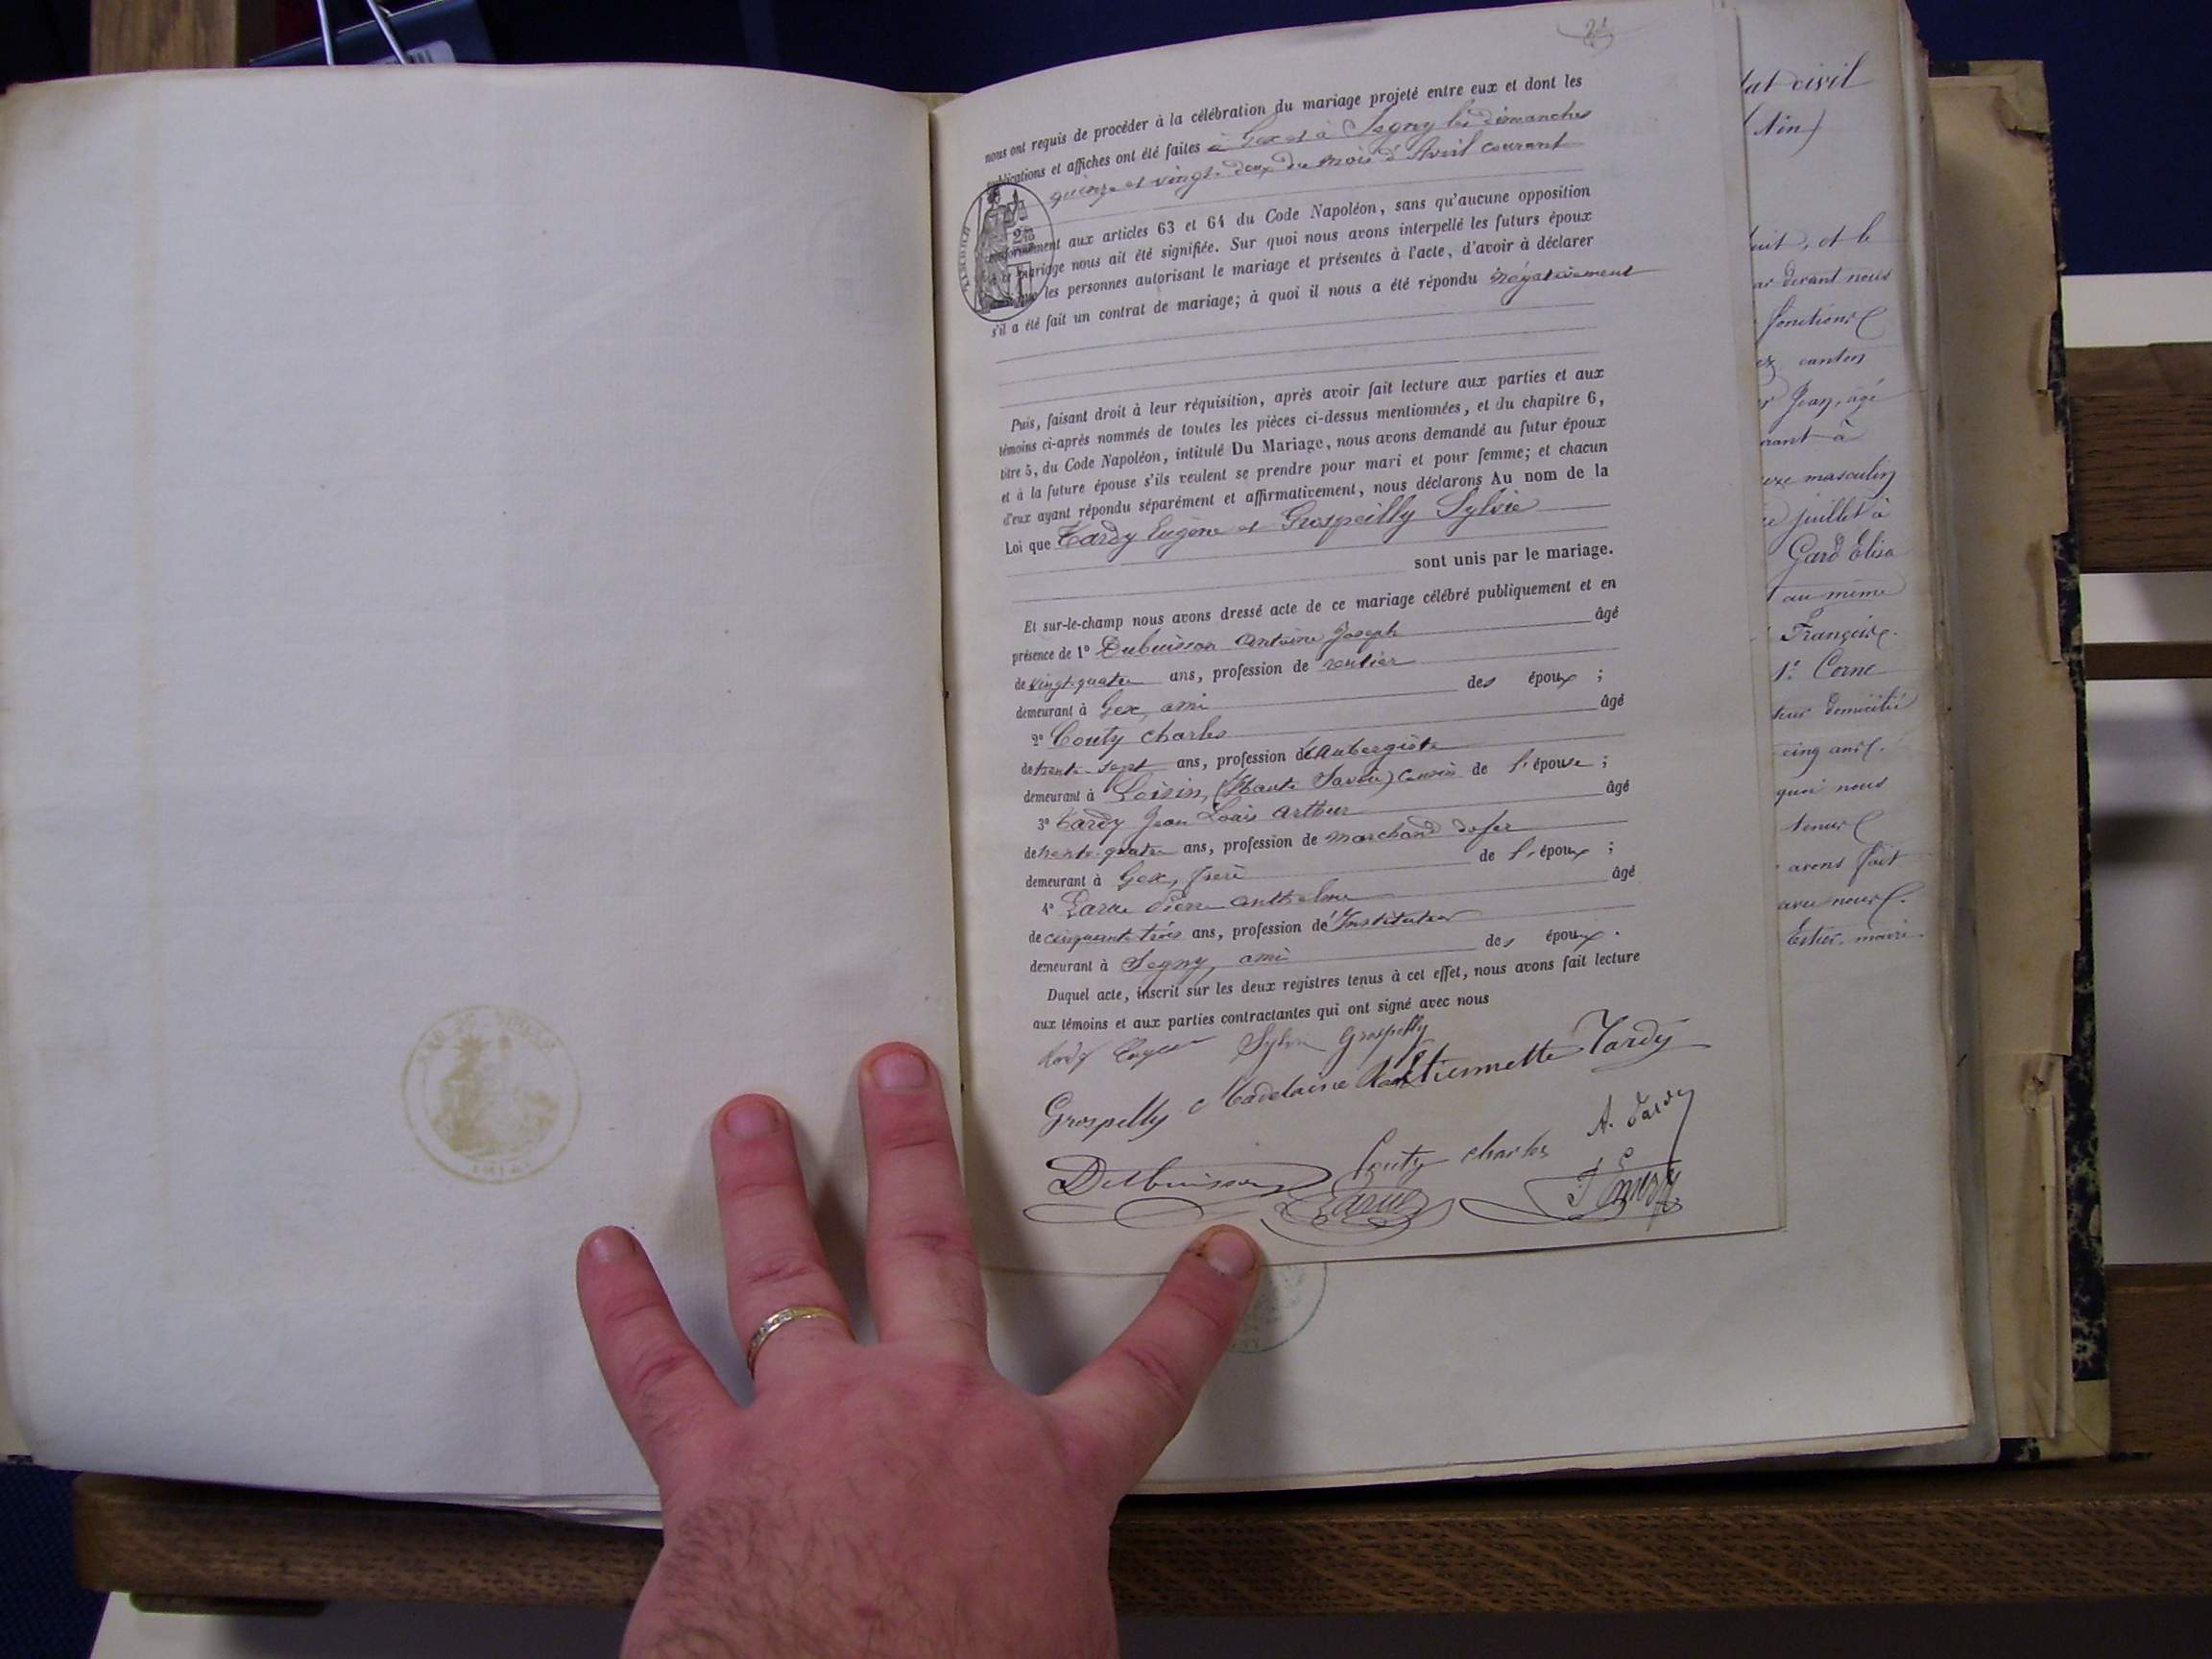 nous ont requis de procéder à la célébration du mariage projeté entre eux et dont les
publications et affiches ont été faites à Gex et à Segny les dimanches
quinze et vingt-deux du mois d'Avril courant
conformément aux articles 63 et 64 du Code Napoléon, sans qu'aucune opposition
mariage nous ait été signifiée. Sur quoi nous avons interpellé les futurs époux
les personnes autorisant le mariage et présentes à l'acte, d'avoir à déclarer
s'il a été fait un contrat de mariage; à quoi il nous a été répondu négativement
Puis, faisant droit à leur réquisition, après avoir fait lecture aux parties et aux
témoins ci-après nommés de toutes les pièces ci-dessus mentionnées, et du chapitre 6,
titre 5, du Code Napoléon, intitulé Du Mariage, nous avons demandé au futur époux
et à la future épouse s'ils veulent se prendre pour mari et pour femme; et chacun
d'eux ayant répondu séparément et affirmativement, nous déclarons Au nom de la
Loi que Tardy Eugène et Grospeilly Sylvie
sont unis par le mariage.
Et sur-le-champ nous avons dressé acte de ce mariage célébré publiquement et en
présence de 1° Dubuisson Antoine Joseph âgé
de vingt-quatre ans, profession de rentier
demeurant à Gex, ami des époux ;
2° Couty Charles âgé
de trente-sept ans, profession d'Aubergiste
demeurant à Loisin, (Haute Savoie) cousin de l'épouse ;
3° Tardy Jean Louis Arthur âgé
de trente-quatre ans, profession de marchand de fer
demeurant à Gex, frère de l'époux ;
4° Larue Pierre Anthelme âgé
de cinquante-trois ans, profession d'Instituteur
demeurant à Segny, ami des époux.
Duquel acte, inscrit sur les deux registres tenus à cet effet, nous avons fait lecture
aux témoins et aux parties contractantes qui ont signé avec nous
Tardy Eugène Sylvie Grospelly
Grospelly Madelaine Etiennette Tardy
A. Tardy
Dubuisson Couty Charles
Larue
état civil
(Ain)
huit, et le
par devant nous
fonctions
canton
Jean, âgé
sexe masculin
juillet à
Gard Elisa
au même
Françoise
1° Corne
domicilié
cinq ans
quoi nous
avons fait
avec nous
maire